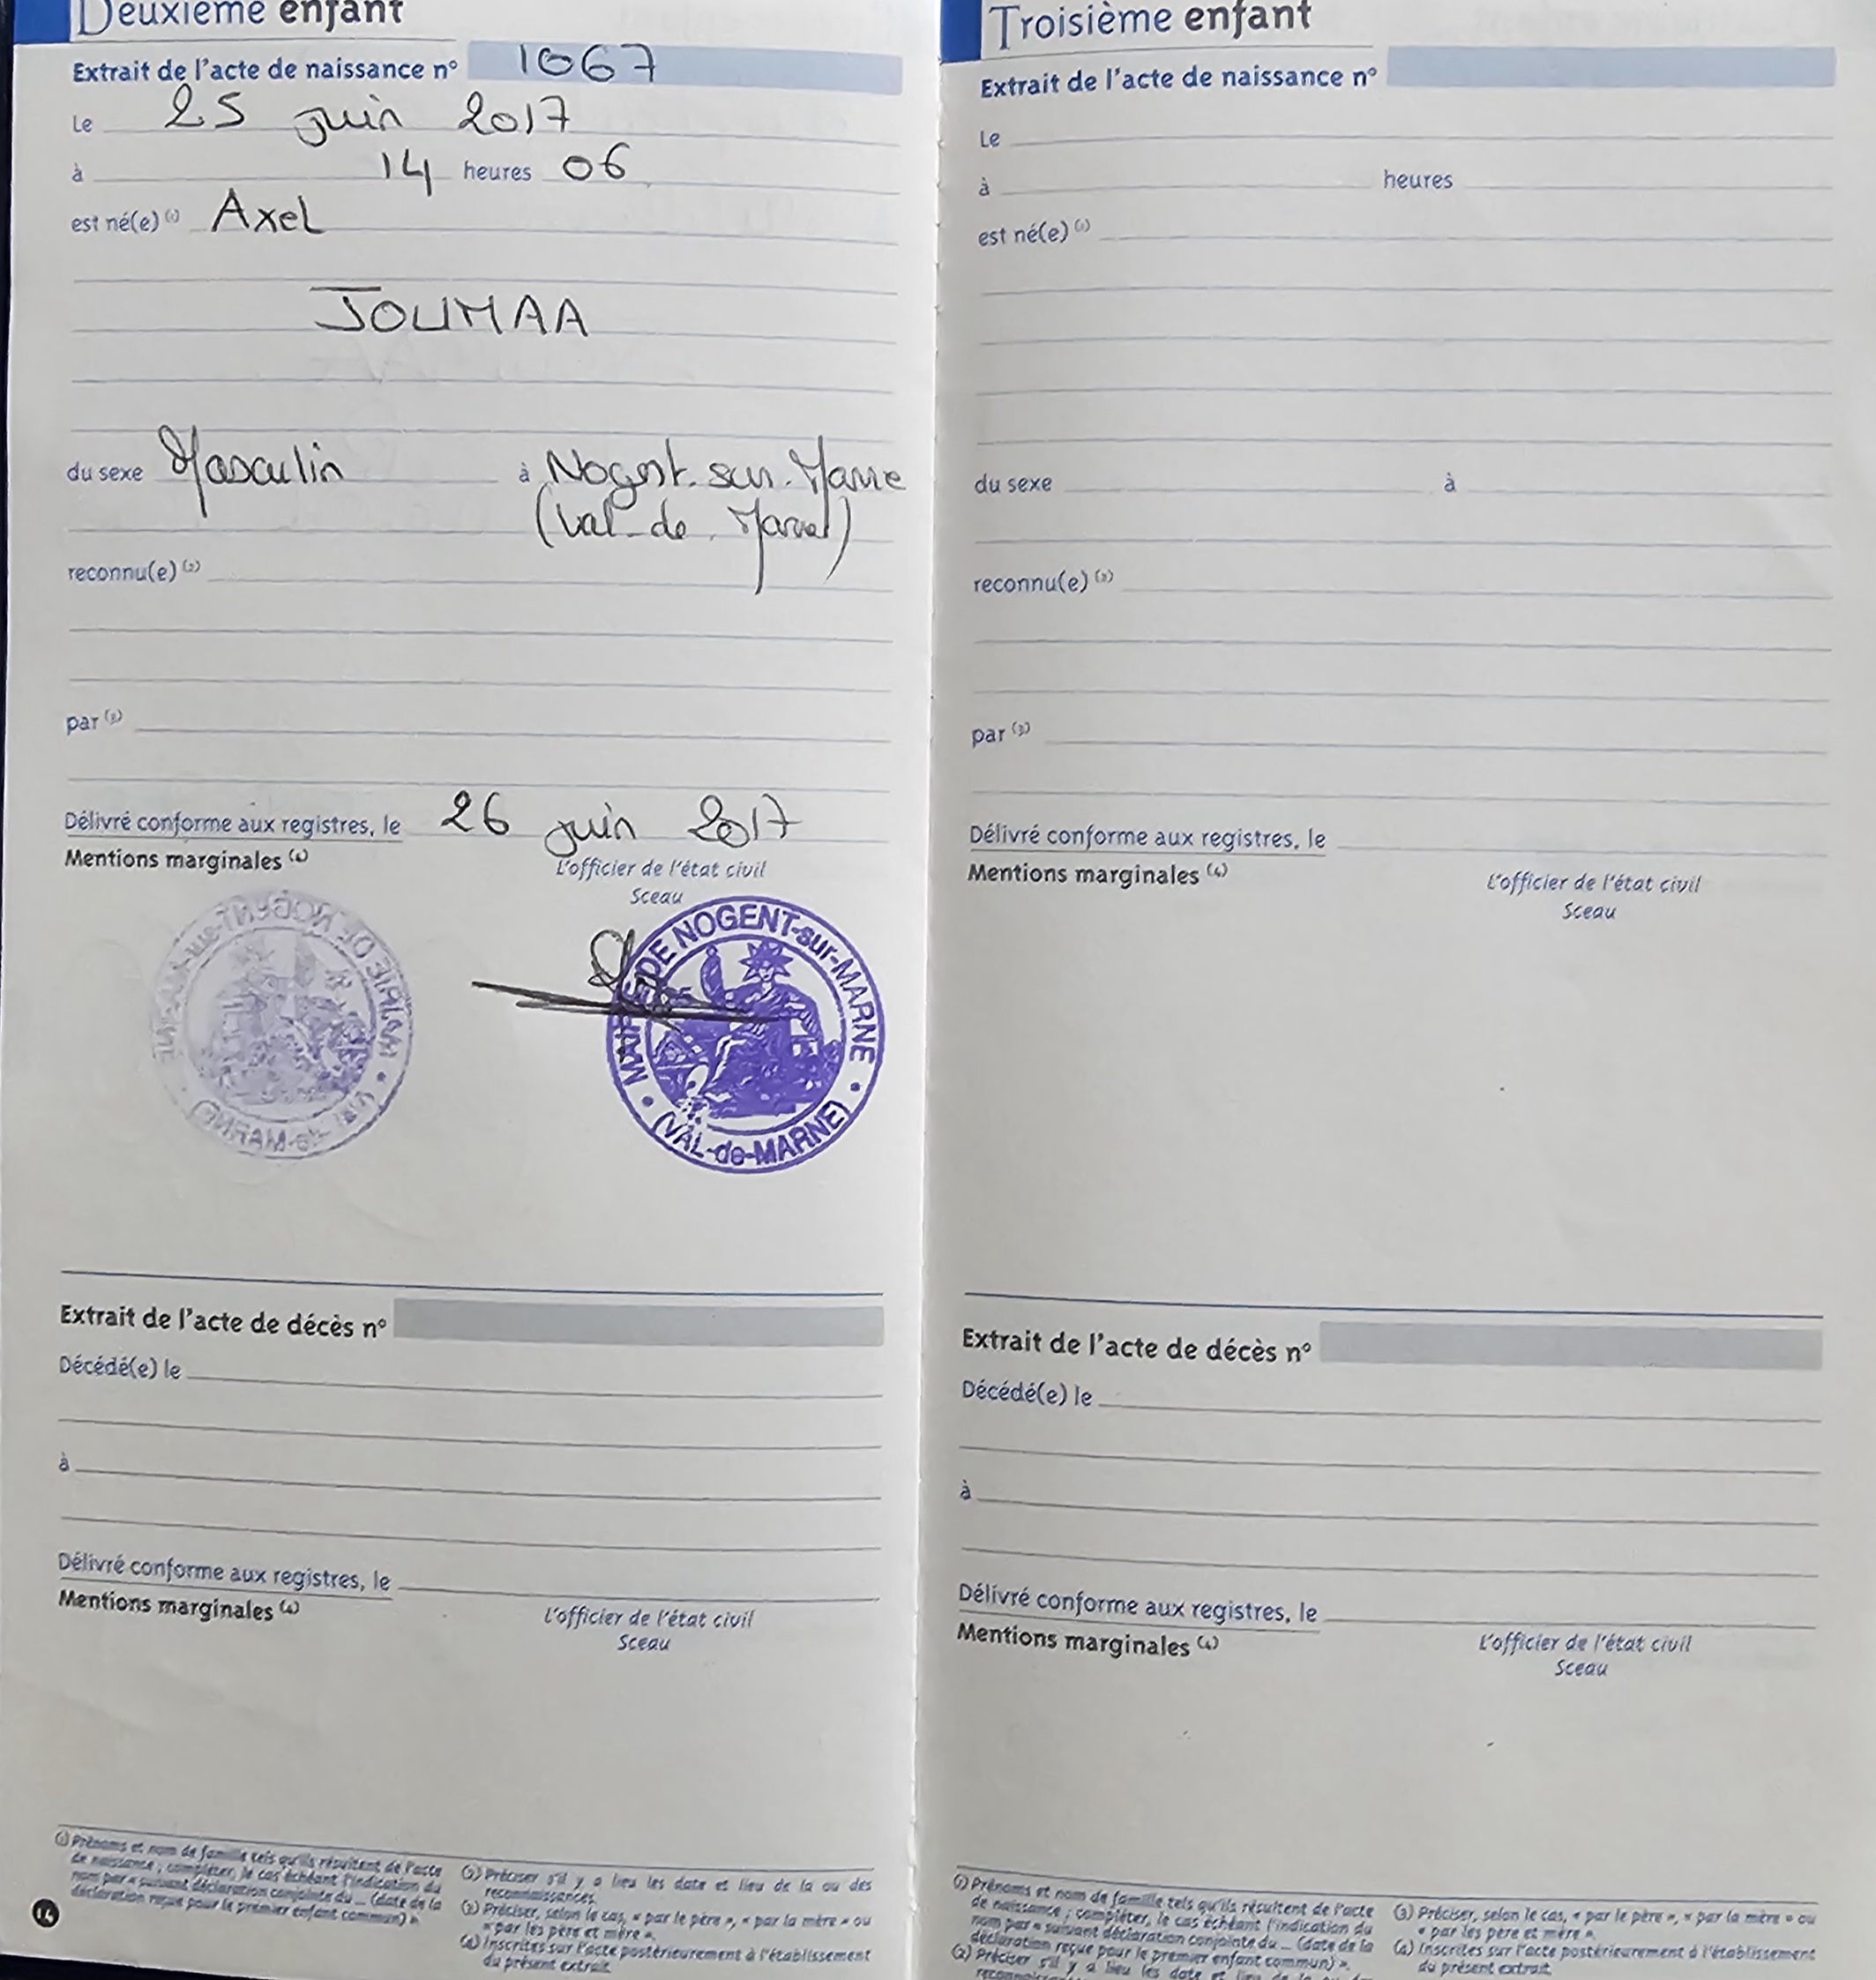 Deuxième enfant
Extrait de l'acte de naissance n° 1067
Le 25 juin 2017
à 14 heures 06
est né(e) (1) Axel
JOUMAA
du sexe Masculin à Nogent-sur-Marne
(Val-de-Marne)
reconnu(e) (2)
par (3)
Délivré conforme aux registres, le 26 juin 2017
Mentions marginales (4)
L'officier de l'état civil
Sceau
MAIRIE DE NOGENT-sur-MARNE
(VAL-de-MARNE)
Extrait de l'acte de décès n°
Décédé(e) le
à
Délivré conforme aux registres, le
Mentions marginales (4)
L'officier de l'état civil
Sceau
(1) Prénoms et nom de famille tels qu'ils résultent de l'acte
de naissance ; compléter, le cas échéant l'indication du
nom par « suivant déclaration conjointe du ... (date de la
déclaration reçue pour le premier enfant commun) ».
(2) Préciser s'il y a lieu les date et lieu de la ou des
reconnaissances.
(3) Préciser, selon le cas, « par le père », « par la mère » ou
« par les père et mère ».
(4) Inscrites sur l'acte postérieurement à l'établissement
du présent extrait.
14
Troisième enfant
Extrait de l'acte de naissance n°
Le
à heures
est né(e) (1)
du sexe à
reconnu(e) (2)
par (3)
Délivré conforme aux registres, le
Mentions marginales (4)
L'officier de l'état civil
Sceau
Extrait de l'acte de décès n°
Décédé(e) le
à
Délivré conforme aux registres, le
Mentions marginales (4)
L'officier de l'état civil
Sceau
(1) Prénoms et nom de famille tels qu'ils résultent de l'acte
de naissance ; compléter, le cas échéant l'indication du
nom par « suivant déclaration conjointe du ... (date de la
déclaration reçue pour le premier enfant commun) ».
(2) Préciser s'il y a lieu les date et lieu de la ou des
(3) Préciser, selon le cas, « par le père », « par la mère » ou
« par les père et mère ».
(4) Inscrites sur l'acte postérieurement à l'établissement
du présent extrait.